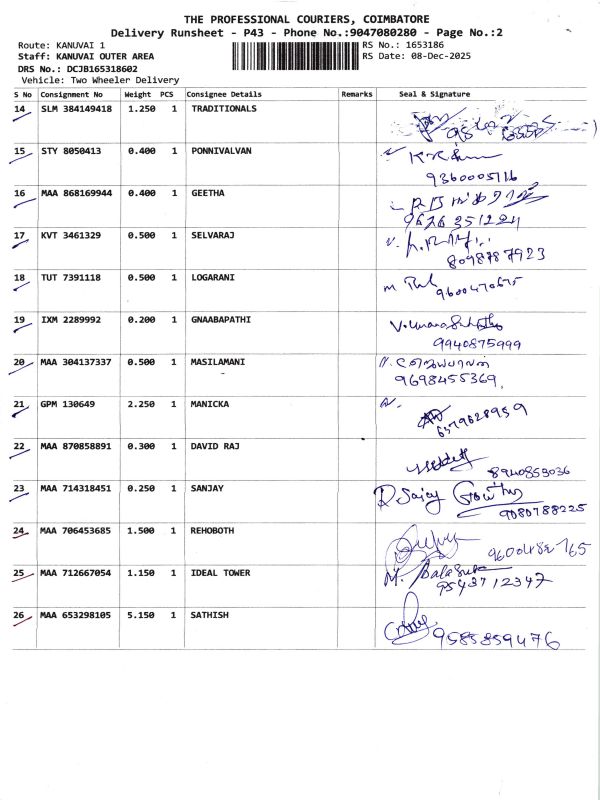 THE PROFESSIONAL COURIERS, COIMBATORE
Delivery Runsheet - P43 - Phone No.:9047080280 - Page No.:2
Route: KANUVAI 1 RS No.: 1653186
Staff: KANUVAI OUTER AREA RS Date: 08-Dec-2025
DRS No.: DCJB165318602
Vehicle: Two Wheeler Delivery
S No Consignment No Weight PCS Consignee Details Remarks Seal & Signature
14 SLM 384149418 1.250 1 TRADITIONALS
15 STY 8050413 0.400 1 PONNIVALVAN
9360005116
16 MAA 868169944 0.400 1 GEETHA
9626351221
17 KVT 3461329 0.500 1 SELVARAJ
8098787923
18 TUT 7391118 0.500 1 LOGARANI
9600470675
19 IXM 2289992 0.200 1 GNAABAPATHI
9940875999
20 MAA 304137337 0.500 1 MASILAMANI
9698455369
21 GPM 130649 2.250 1 MANICKA
6379628959
22 MAA 870858891 0.300 1 DAVID RAJ
8940859036
23 MAA 714318451 0.250 1 SANJAY R Sanjay
9080788225
24 MAA 706453685 1.500 1 REHOBOTH
25 MAA 712667054 1.150 1 IDEAL TOWER M. Balasub
9543712347
26 MAA 653298105 5.150 1 SATHISH
9585859476